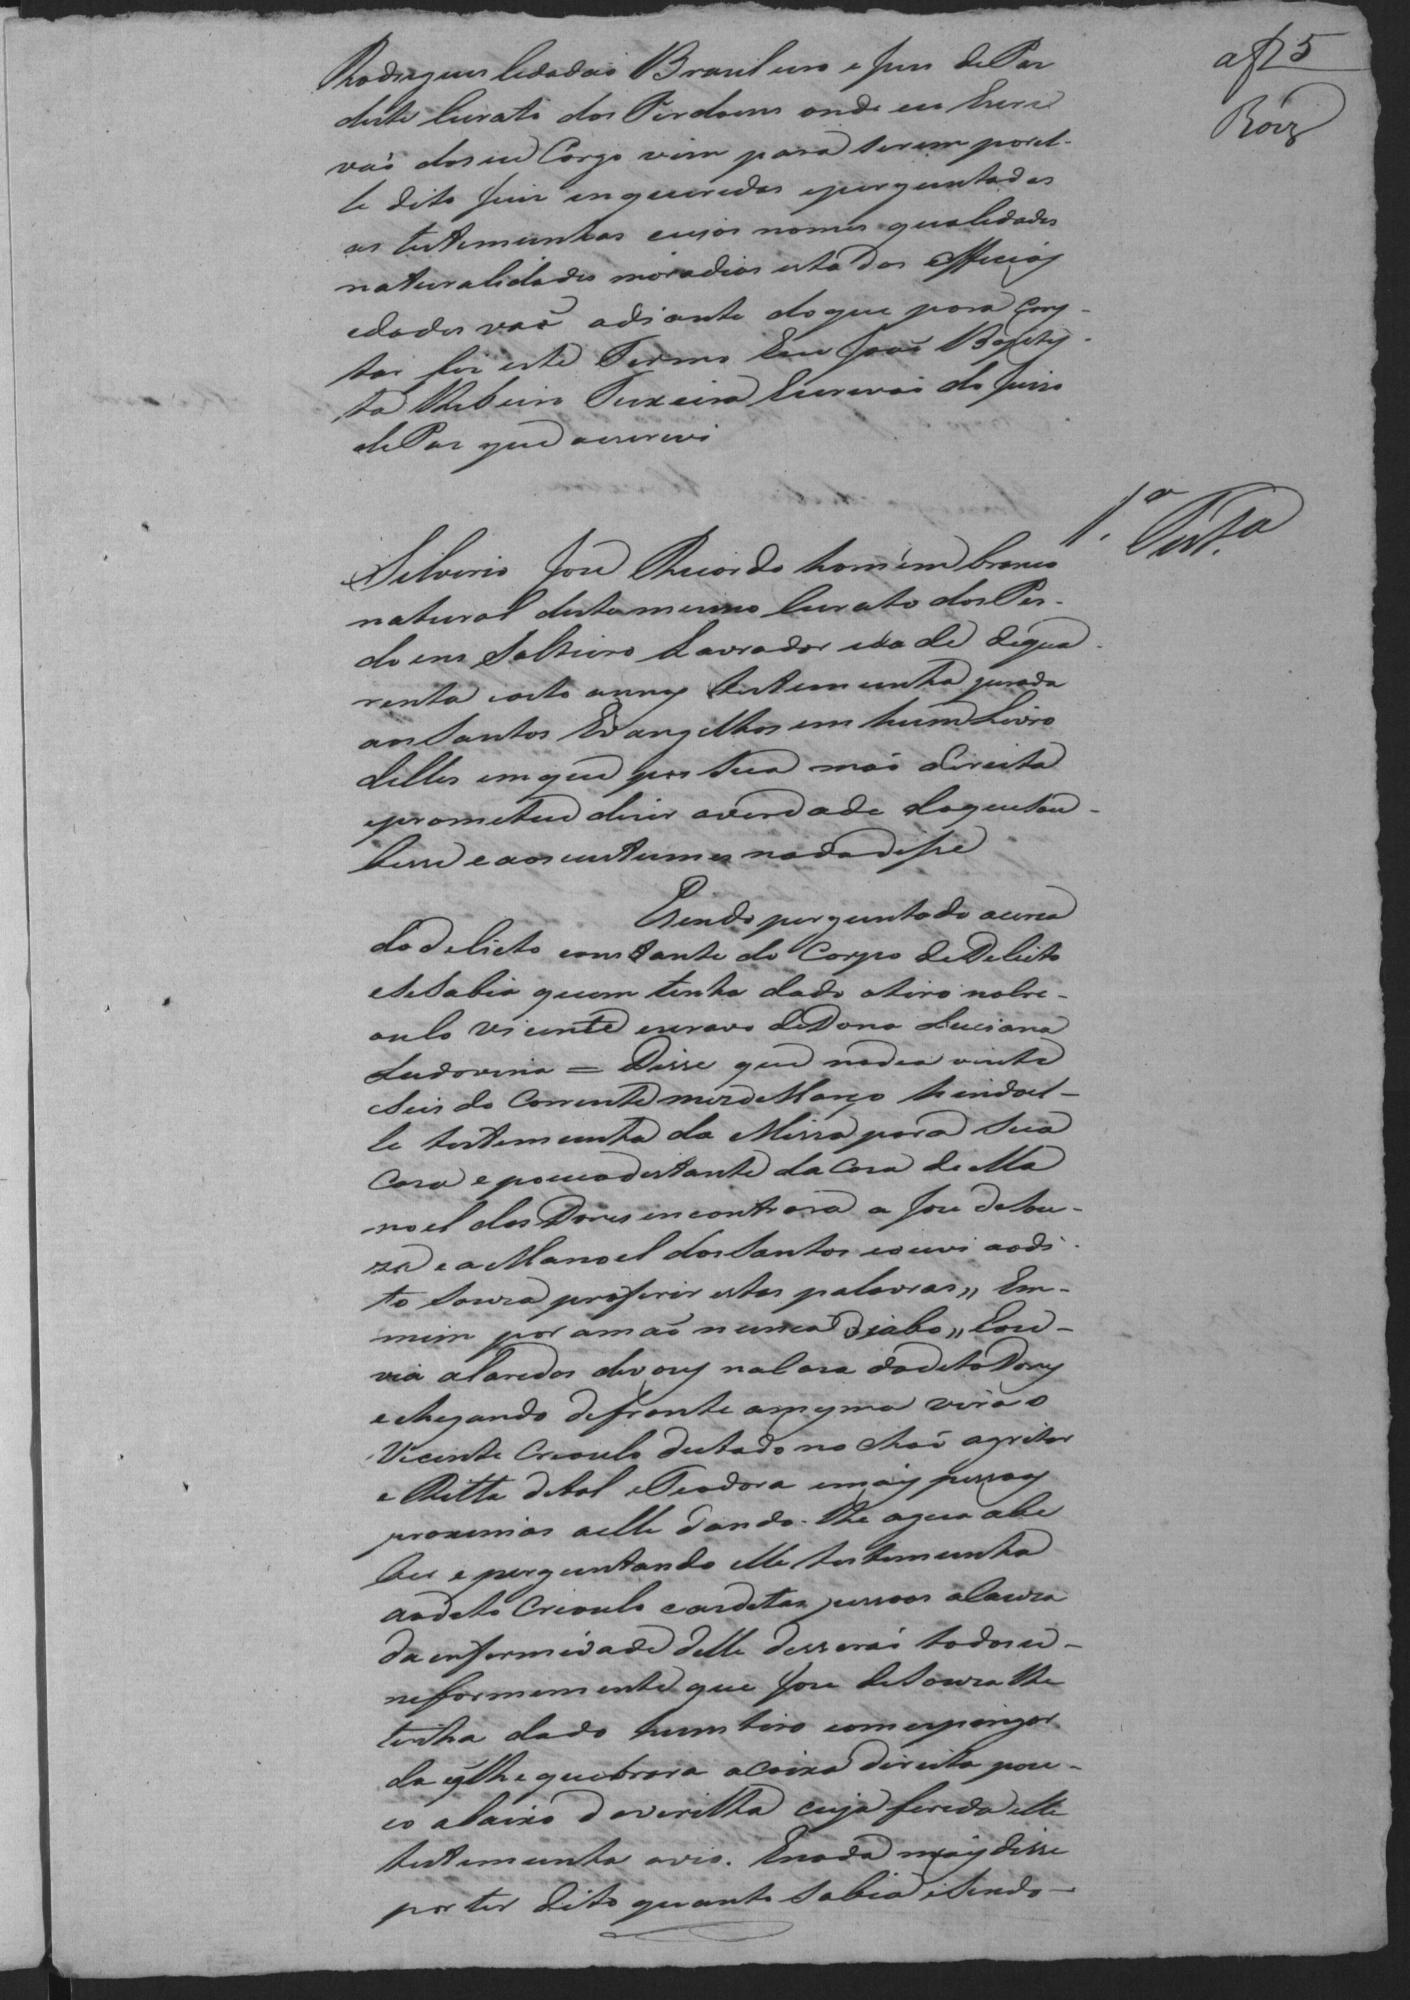 af 5
Roiz
Rodrigues Cidadaõ Brasileiro e Juis de Pas
deste Curato dos Perdoens onde eu Escri
vaõ doseu Cargo vim para serem porel-
le dito Juis inqueredas eperguntadas
as testemunhas cujos nomes qualidades
naturalidades moradias estados Officios
edades vaõ adiante doque para Cons-
tar fis este Termo Eu Joaõ Baptis-
ta Ribeiro Teixeira Escrivaõ do Juiso
de Pas que oescrevi
1.ª Test.ª
Silverio Jose Ricardo homem branco
natural destemesmo Curato dos Per-
doens Solteiro Lavrador idade dequa-
renta eoito annos testemunha jurada
aos Santos Evangelhos em hum Livro
delles emque pos Sua maõ direita
eprometeu diser averdade doquesou-
besse eaoscustumes nadadisse
Esendo perguntado acerca
do delicto constante do Corpo de Delicto
eSeSabia quem tinha dado otiro nocre-
oulo Vicente escravo deDona Luciana
Ludovina = Disse que nodia vinte
Seis do Corrente mesdeMarço hindoel-
le testemunha da Missa para Sua
Casa e poucodistante da Casa de Ma
noel das Dores encontrara a Jose deSou-
za e a Manoel dosSantos eouvi aodi-
to Souza proferir estas palavras,, Em-
mim por amaõ nunca Diabo,, Eou-
via alaredos devozes naCasa doditoDores
echegando defronte amesma viráo
Vicente Creoulo deitado no chaõ agritar
e Ritta detal eTeodora emais pessoas
proximas aelle dando-lhe agua abe
ber e perguntando elle testemunha
aodito Creoulo easditas pessoas aCausa
da enfermidade delle disseraõ todosu-
neformemente que Jose deSouza lhe
tinha dado hum tiro comespingar
da elhe quebrara aCoixa direita pou-
co abaixo daverilha cuja ferida elle
testemunha avio. Enada mais disse
por ter dito quanto Sabia eSendo-